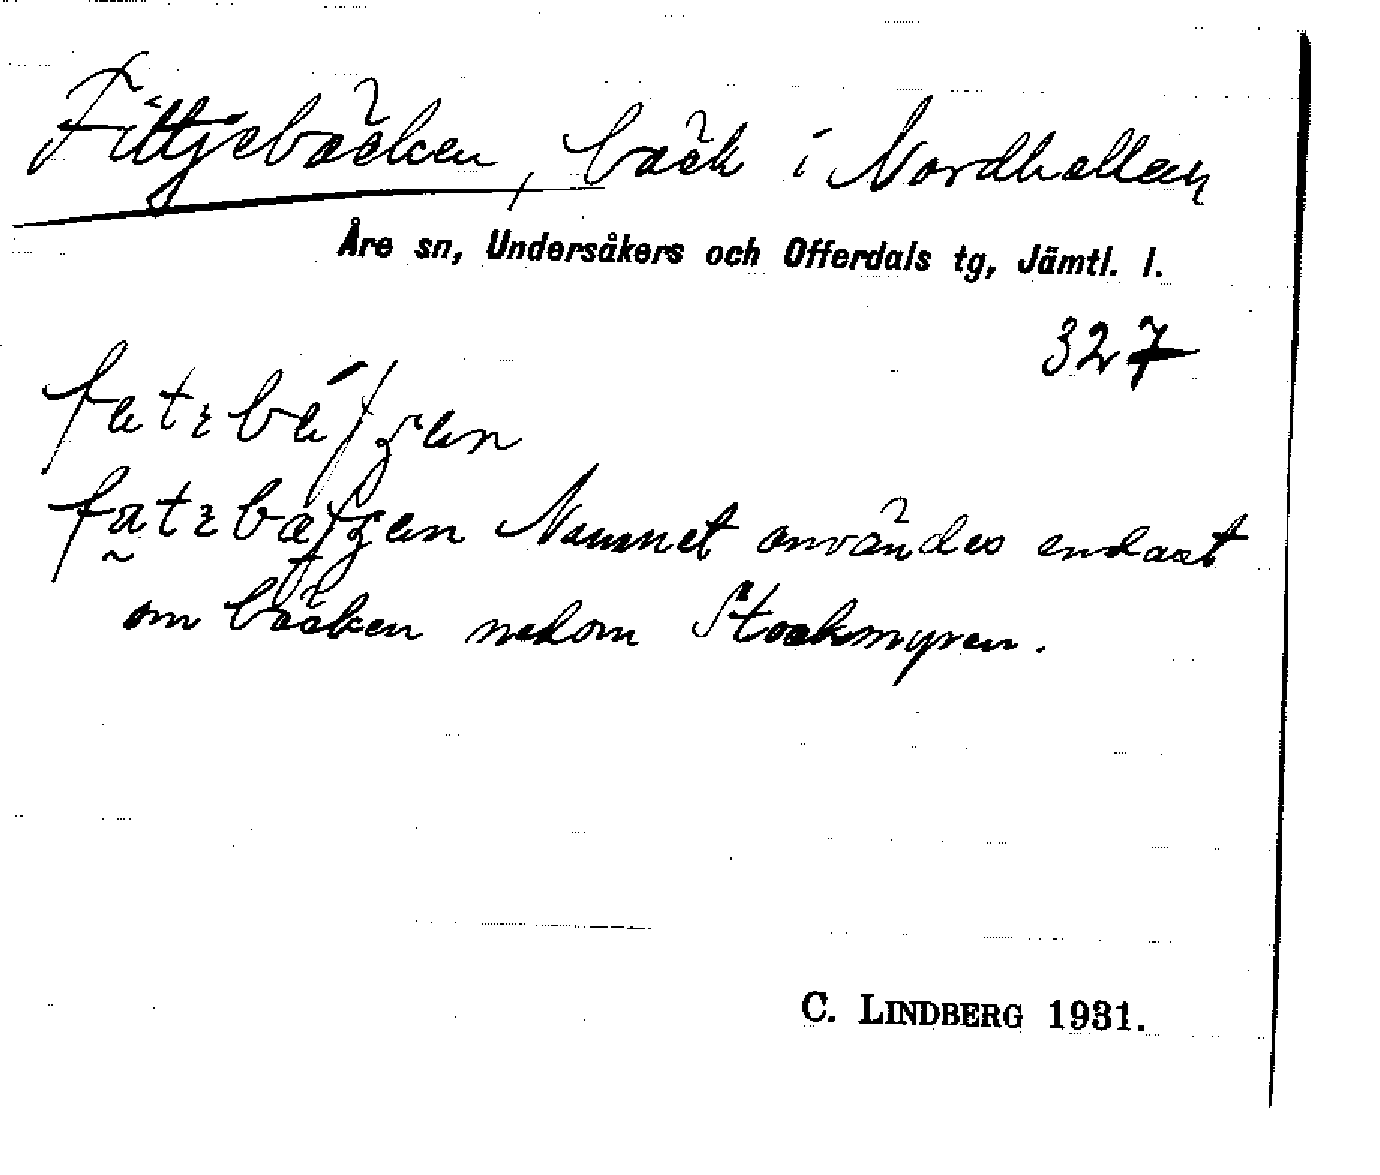 Fittjebäcken, bäck i Nordhallen
Åre sn, Undersåkers och Offerdals tg, Jämtl. l.
327
Namnet användes endast
om bäcken nedom Stockmyren.
C. LINDBERG 1931.